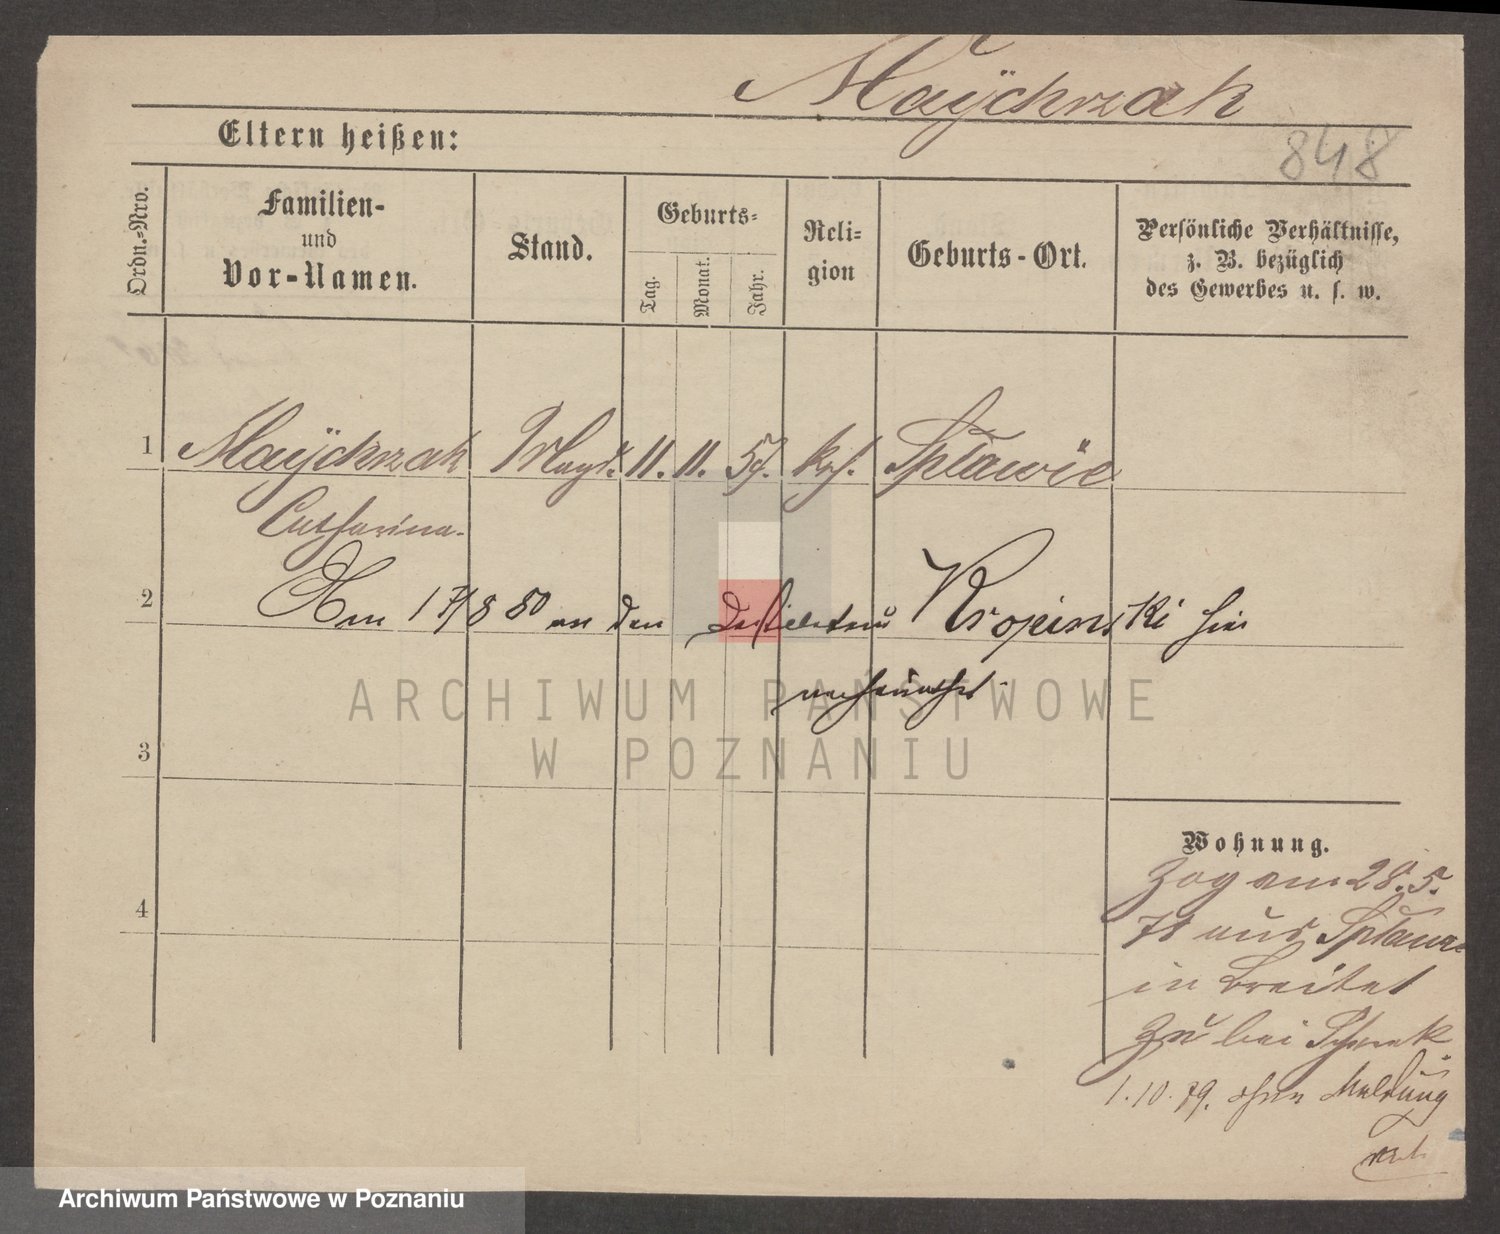 Maÿchrzak
848
Eltern heißen:
Ordn.-Nro.
Familien-
und
Vor-Namen.
Stand.
Geburts-
Tag.
Monat.
Jahr.
Reli-
gion
Geburts-Ort.
Persönliche Verhältnisse,
z. B. bezüglich
des Gewerbes u. s. w.
1 Maÿchrzak Magd. 11. 11. 57. kath. Spławie
Catharina.
2 Am 17/8 80 an den Kropinski hier
verheirathet.
ARCHIWUM PAŃSTWOWE
W POZNANIU
3
Wohnung.
Zog am 28. 5.
78 aus Spławie
4
in
zu bei
1. 10. 79. ohne Meldung
Archiwum Państwowe w Poznaniu